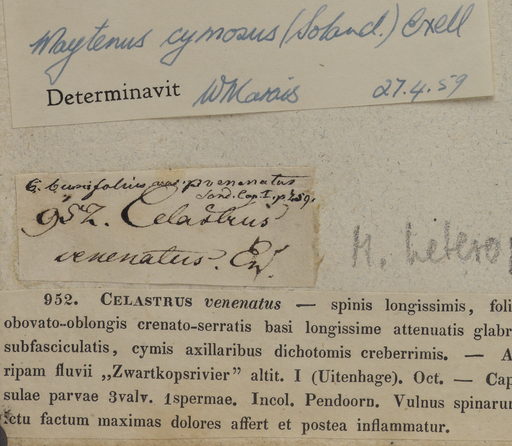 Maytenus cymosus (Soland.) Exell
Determinavit WMarais 27.4.59
C. buxifolius var. venenatus
Sond. Cap. I. p. 459.
952. Celastrus
venenatus. E.
M. hetero
952. CELASTRUS venenatus — spinis longissimis, foli
obovato-oblongis crenato-serratis basi longissime attenuatis glabr
subfasciculatis, cymis axillaribus dichotomis creberrimis. — A
ripam fluvii „Zwartkopsrivier” altit. I (Uitenhage). Oct. — Cap
sulae parvae 3valv. 1spermae. Incol. Pendoorn. Vulnus spinarum
ictu factum maximas dolores affert et postea inflammatur.